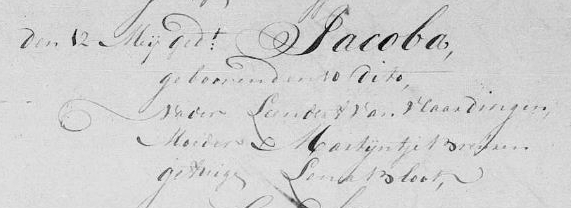 den 12 Meij ged.t Jacoba,
geboorenden 10 dito,
Vader Leendert Van Vlaardingen,
Moeder Martijntje
getuige Lena Sloot,